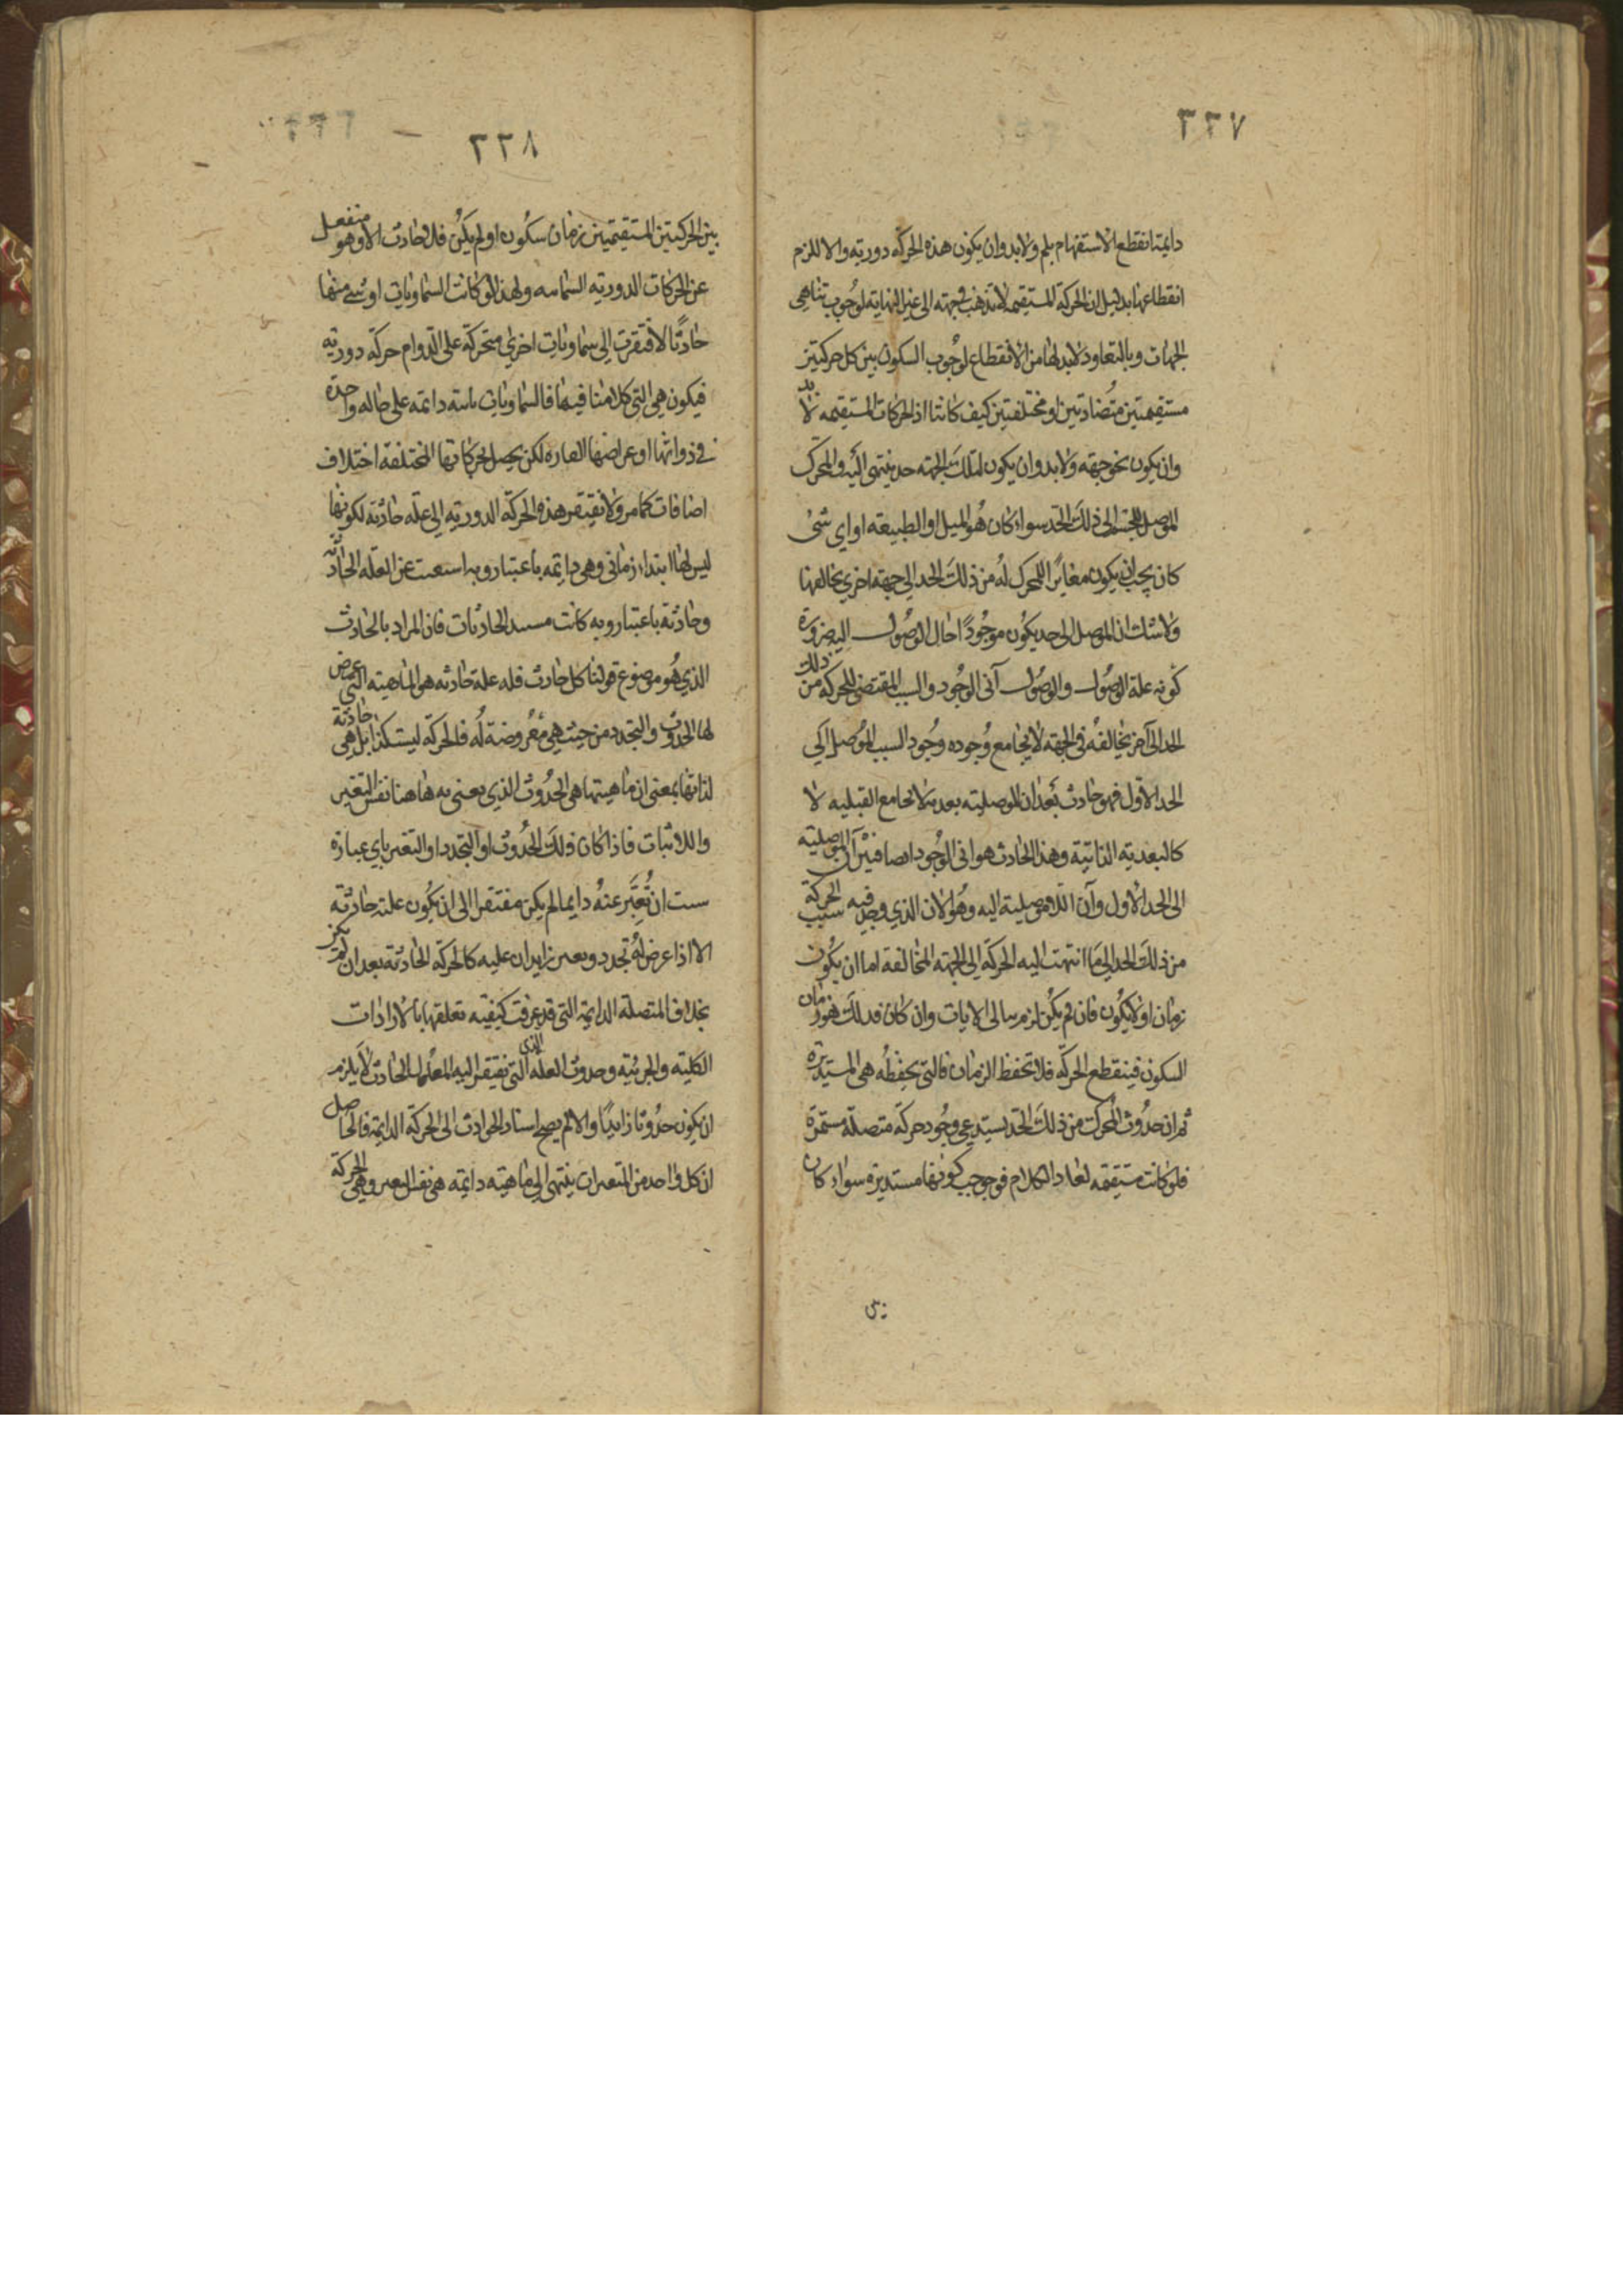 ٣٣٧
دايمة انقطع الاستفهام بلم ولابد وان يكون هذه الحركة دوريه والا للزم
انقطاعها بدليل ان الحركة المستقيمه لا تذهب في جهته الى غير النهاية لوجوب تناهي
الجهات وبالتعاود لابد لها من الانقطاع لوجوب السكون بين كل حركتين
مستقيمتين متضادتين او مختلفتين كيف كانتا اذ الحركات المستقيمه لا بد
وان يكون نحو جهته ولابد وان يكون لتلك الجهته حد ينتهى اليه والمحرك
الموصل للجسم الى ذلك الحد سواء كان هو الميل او الطبيعه او اي شئ
كان يجب ان يكون مغايرًا للمحرك له من ذلك الحد الى جهته اخرى يخالفها
ولا شك ان الموصل الى حد يكون موجودًا حال الوصول اليه ضرورة
كونه علة الوصول والوصول آنى الوجود والسبب المقتضى للحركه من ذلك
الحد الى آخر يخالفه في الجهته لا يجامع وجوده وجود السبب الموصل الى
الحد الاول فهو حادث بعد ان الموصليته بعديه لا تجامع القبليه لا
كالبعديه الذاتيه وهذا الحادث هو انى الوجود ايضا فبين آن الموصليته
الى الحد الاول وآن اللاموصلية اليه وهو الآن الذي وجد فيه سبب الحركة
من ذلك الحد الى ما انتهت اليه الحركه الى الجهته المخالفة اما ان يكون
زمان او لا يكون فان لم يكن لزم تتالى الانات وان كان فذلك هو زمان
السكون فينقطع الحركه فلا تحفظ الزمان فالتى يحفظه هى المستديرة
ثم ان حدوث المحرك من ذلك الحد يستدعي وجود حركه متصلة مستمرة
فلو كانت مستقيمه لعاد الكلام فوجب كونها مستديرة سواء كان
٣٣٨
بين الحركتين المستقيمتين زمان سكون او لم يكن فلا حادث الا وهو منفعل
عن الحركات الدوريه السمائيه ولهذا لو كانت السماويات او شئ منها
حادثًا لافتقرت الى سماويات اخرى متحركة على الدوام حركه دوريه
فيكون هى التى كلامنا فيها فالسماويات ثابته دائمه على حاله واحدة
فى ذواتها او عراضها القاره لكن يحصل لحركاتها المختلفة اختلاف
اضافات كما مر ولا تفتقر هذه الحركة الدوريه الى علة حادثه لكونها
ليس لها ابتداء زماني وهى دايمه باعتبار وبه استغنت عن العله الحادثه
وحادثه باعتبار وبه كانت مستند الحادثات فان المراد بالحادث
الذي هو موضوع قولنا كل حادث فله علة حادثه هو الماهيته التى عرض
لها الحدوث والتجدد من حيث هى معروضة له فالحركه ليست كذا بل هى حادثة
لذاتها بمعنى ان ماهيتها هى الحدوث الذي يعنى به هاهنا نفس التغير
واللاثبات فاذا كان ذلك الحدوث او التجدد او التغير باي عبارة
شئت ان تعبر عنه دايما لم يكن مفتقرا الى ان يكون علته حادثه
الا اذا عرض له تجدد وتغير زايدان عليه كالحركة الحادثه بعد ان لم يكن
بخلاف المتصلة الدايمة التى قد عرفت كيفيه تعلقها بالارادات
الكليته والجزئيه وحدوث العله التى تفتقر اليه المعلول الحادث لا يلزم
الذي
ان يكون حدوثا زايدًا والا لم يصح استناد الحوادث الى الحركة الدايمة فالحاصل
ان كل واحد من المتغيرات ينتهى الى ماهيته دايمه هى نفس التغير وهى الحركة